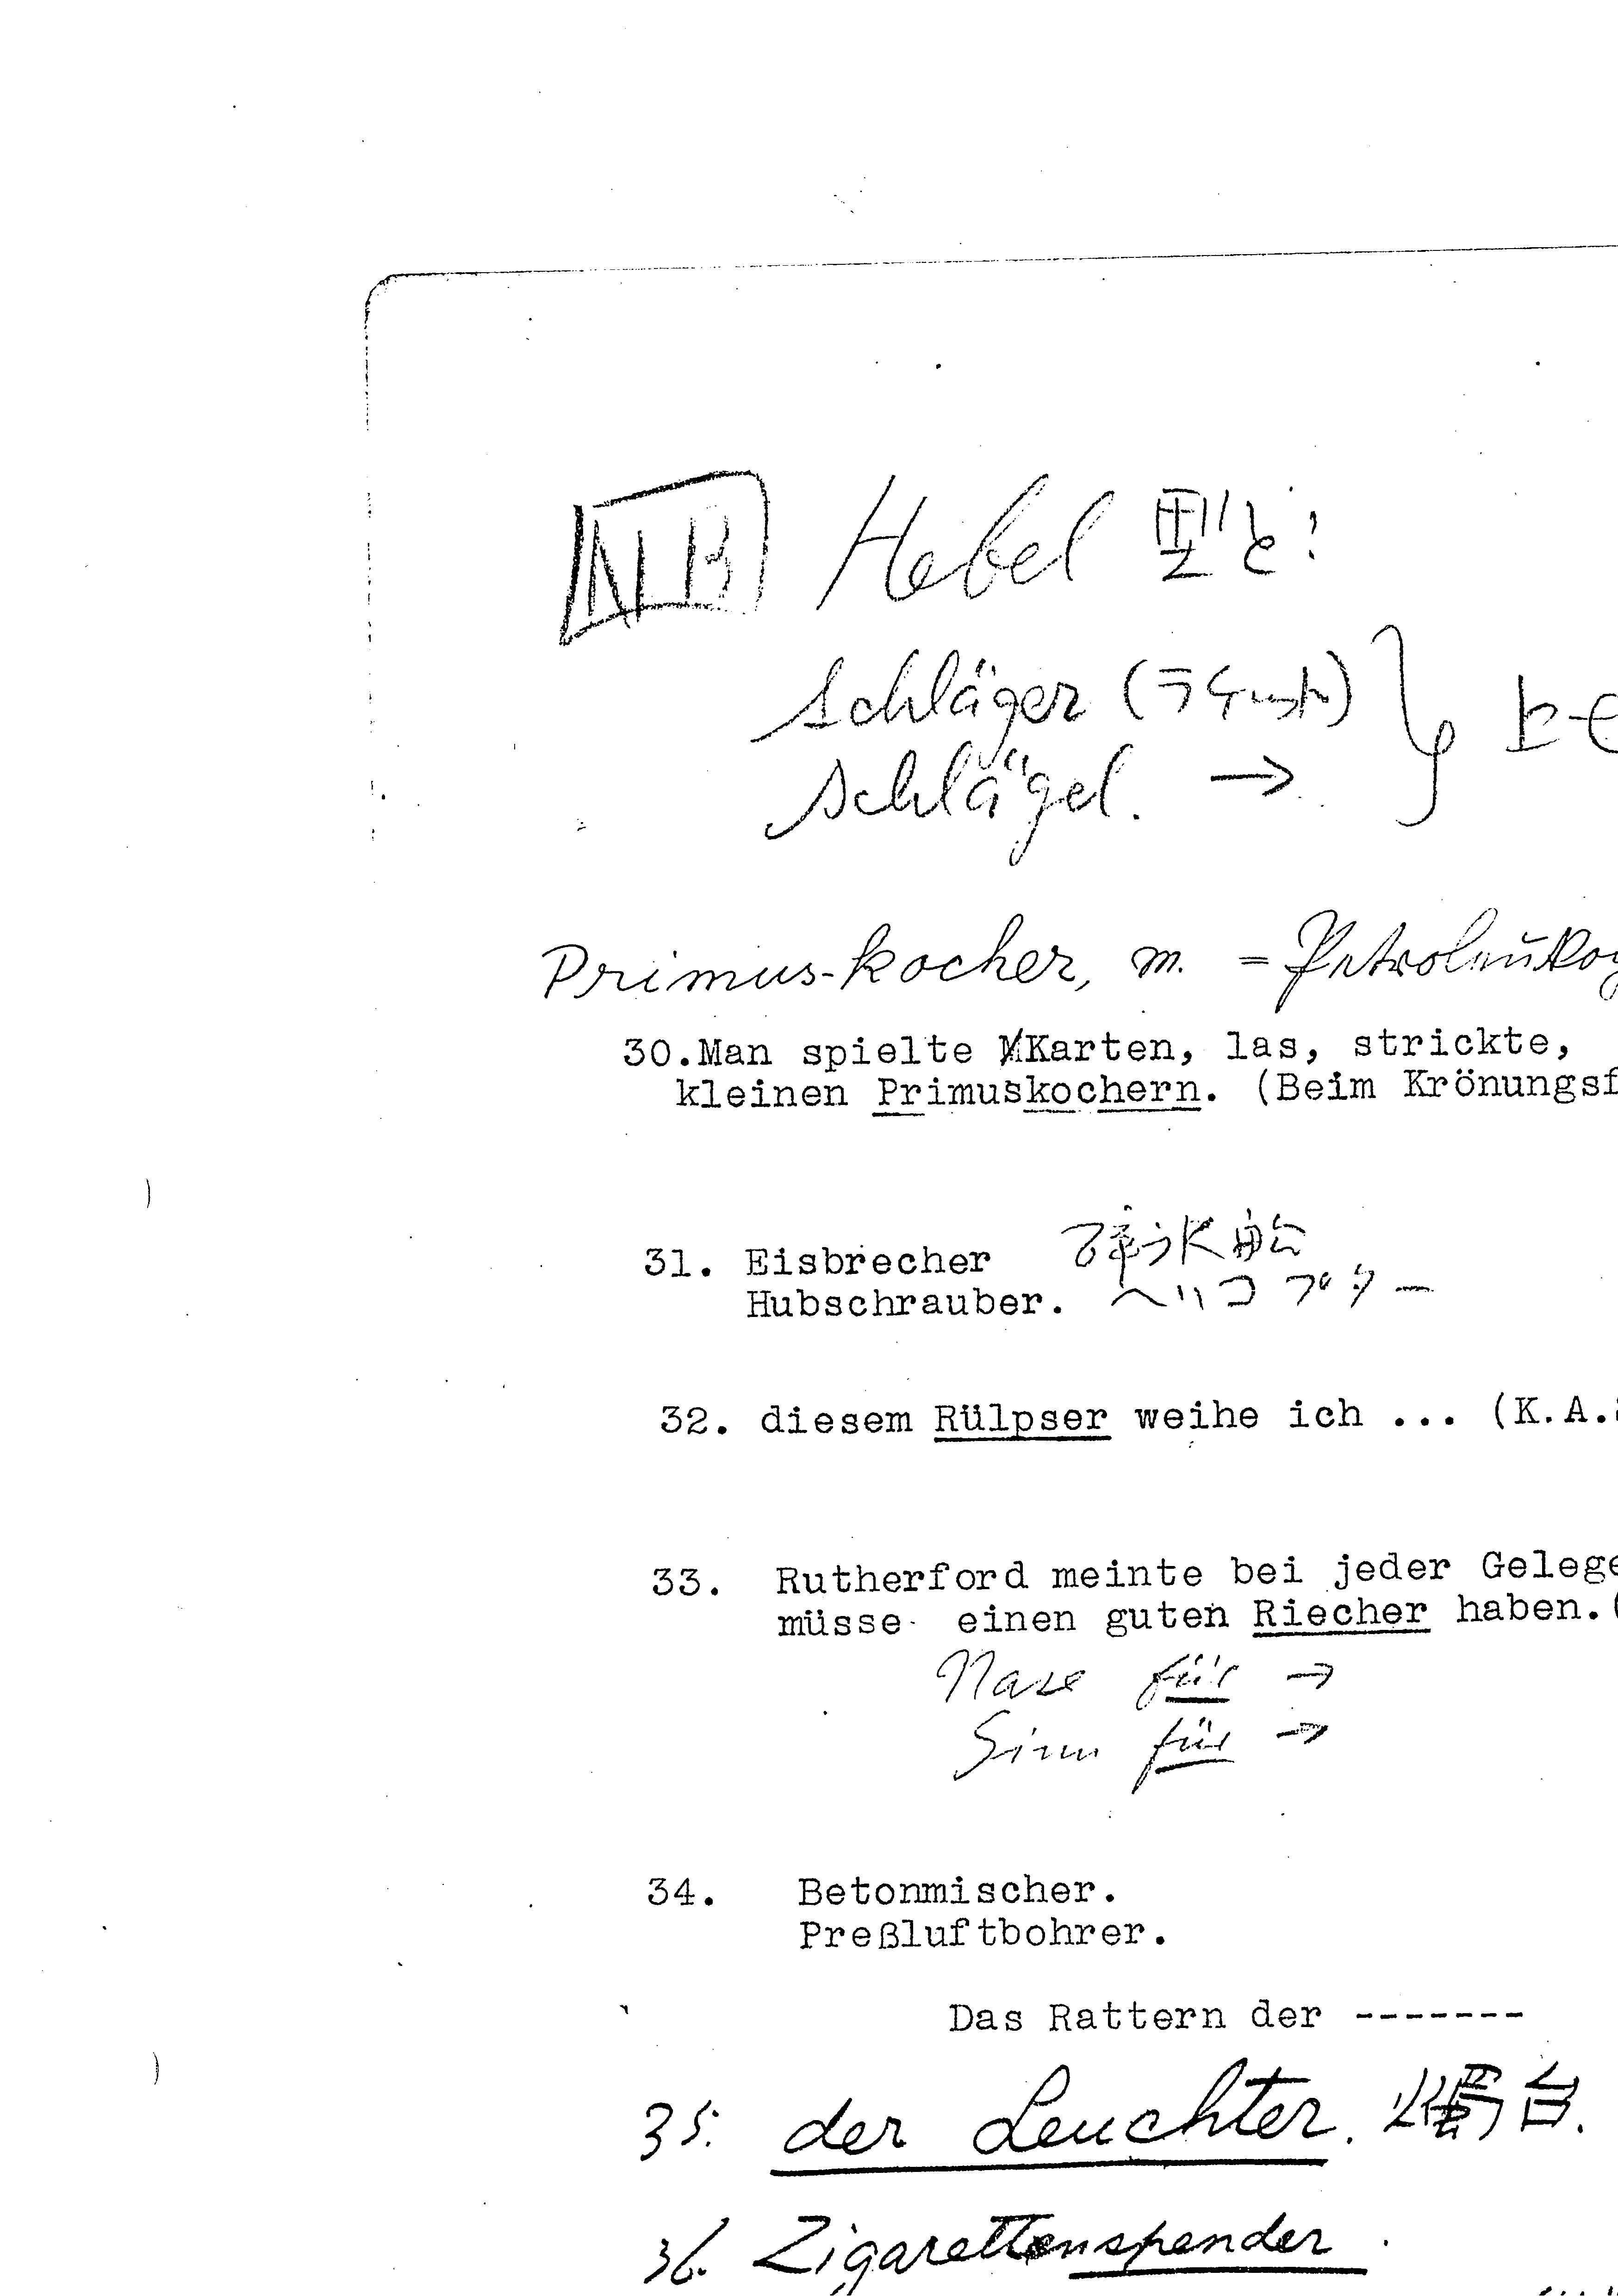 NB Hebel 型と:
Schläger (ラケット)
Schlägel. →
Primus-kocher, m. =
30.Man spielte Karten, las, strickte,
kleinen Primuskochern. (Beim Krönungsf
31. Eisbrecher 砕氷船
Hubschrauber. ヘリコプター
32. diesem Rülpser weihe ich ... (K.A.
33. Rutherford meinte bei jeder Gelege
müsse einen guten Riecher haben.(
Nase für →
Sinn für →
34. Betonmischer.
Preßluftbohrer.
Das Rattern der -------
35. der Leuchter. 燭台.
36. Zigarettenspender.